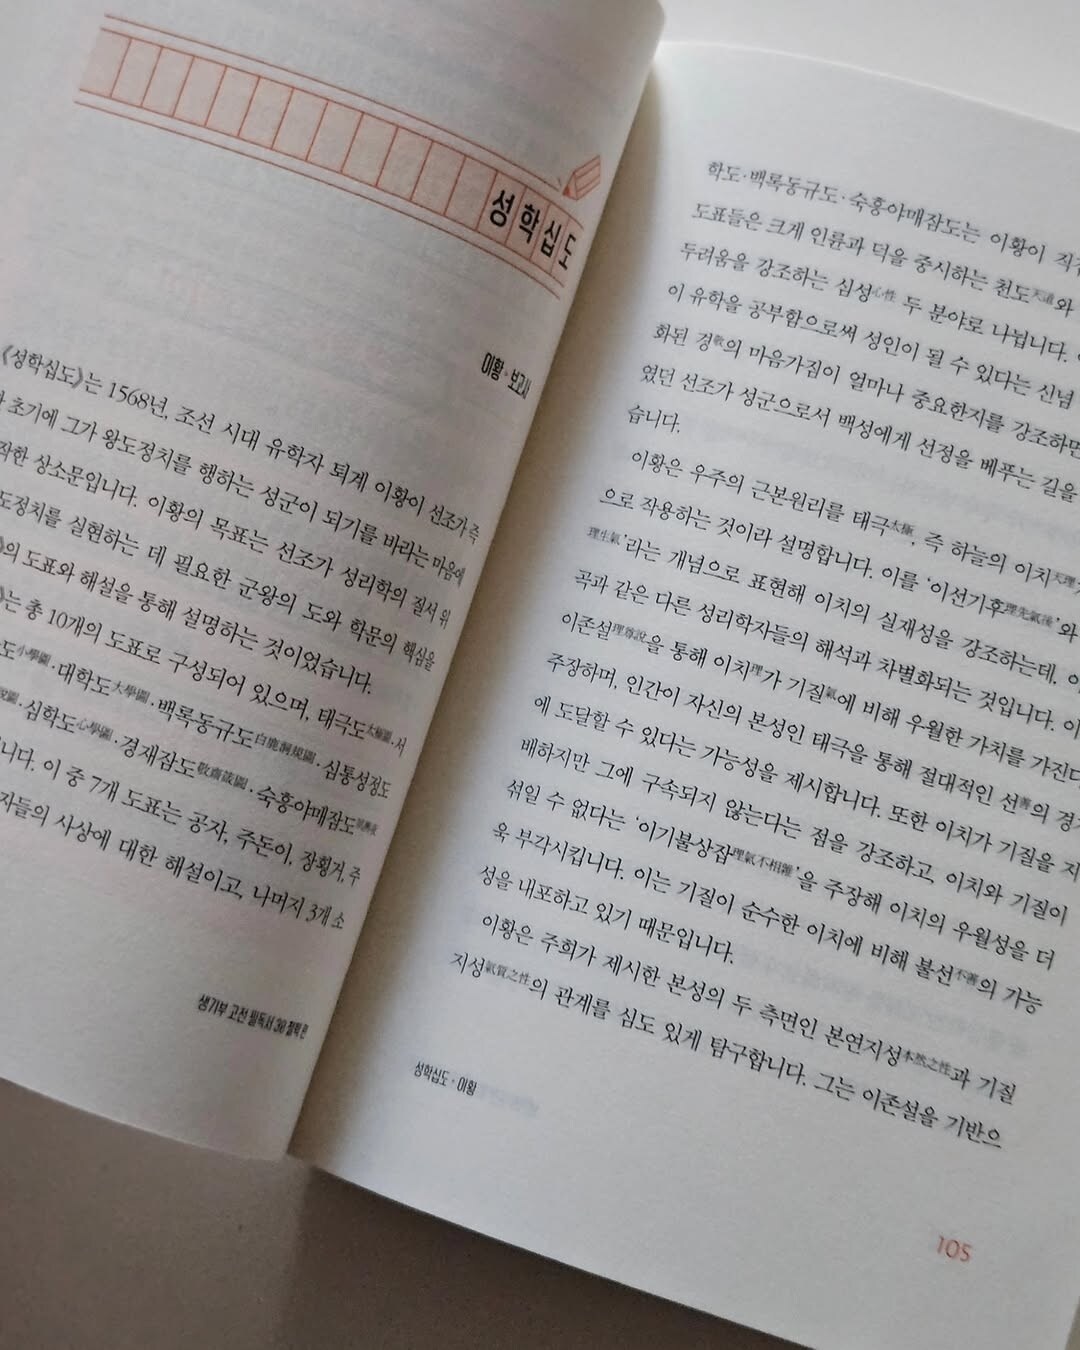 성학십도
이황 · 보고사
《성학십도》는 1568년, 조선 시대 유학자 퇴계 이황이 선조가 즉
초기에 그가 왕도정치를 행하는 성군이 되기를 바라는 마음에
상소문입니다. 이황의 목표는 선조가 성리학의 질서 위
도정치를 실현하는 데 필요한 군왕의 도와 학문의 핵심을
의 도표와 해설을 통해 설명하는 것이었습니다.
는 총 10개의 도표로 구성되어 있으며, 태극도太極圖·서
도小學圖·대학도大學圖·백록동규도白鹿洞規圖·심통성정도
圖·심학도心學圖·경재잠도敬齋箴圖·숙흥야매잠도
니다. 이 중 7개 도표는 공자, 주돈이, 장횡거, 주
자들의 사상에 대한 해설이고, 나머지 3개 소
생기부 고전 필독서 30 철학 편
학도·백록동규도·숙흥야매잠도는 이황이 직
도표들은 크게 인륜과 덕을 중시하는 천도天道와
두려움을 강조하는 심성心性 두 분야로 나뉩니다.
이 유학을 공부함으로써 성인이 될 수 있다는 신념
화된 경敬의 마음가짐이 얼마나 중요한지를 강조하면
였던 선조가 성군으로서 백성에게 선정을 베푸는 길을
습니다.
이황은 우주의 근본원리를 태극太極, 즉 하늘의 이치天理
으로 작용하는 것이라 설명합니다. 이를 '이선기후理先氣後'와
理生氣'라는 개념으로 표현해 이치의 실재성을 강조하는데, 이
곡과 같은 다른 성리학자들의 해석과 차별화되는 것입니다. 이
이존설理尊說을 통해 이치理가 기질氣에 비해 우월한 가치를 가진다
주장하며, 인간이 자신의 본성인 태극을 통해 절대적인 선善의 경
에 도달할 수 있다는 가능성을 제시합니다. 또한 이치가 기질을 지
배하지만 그에 구속되지 않는다는 점을 강조하고, 이치와 기질이
섞일 수 없다는 '이기불상잡理氣不相雜'을 주장해 이치의 우월성을 더
욱 부각시킵니다. 이는 기질이 순수한 이치에 비해 불선不善의 가능
성을 내포하고 있기 때문입니다.
이황은 주희가 제시한 본성의 두 측면인 본연지성本然之性과 기질
지성氣質之性의 관계를 심도 있게 탐구합니다. 그는 이존설을 기반으
성학십도 · 이황
105